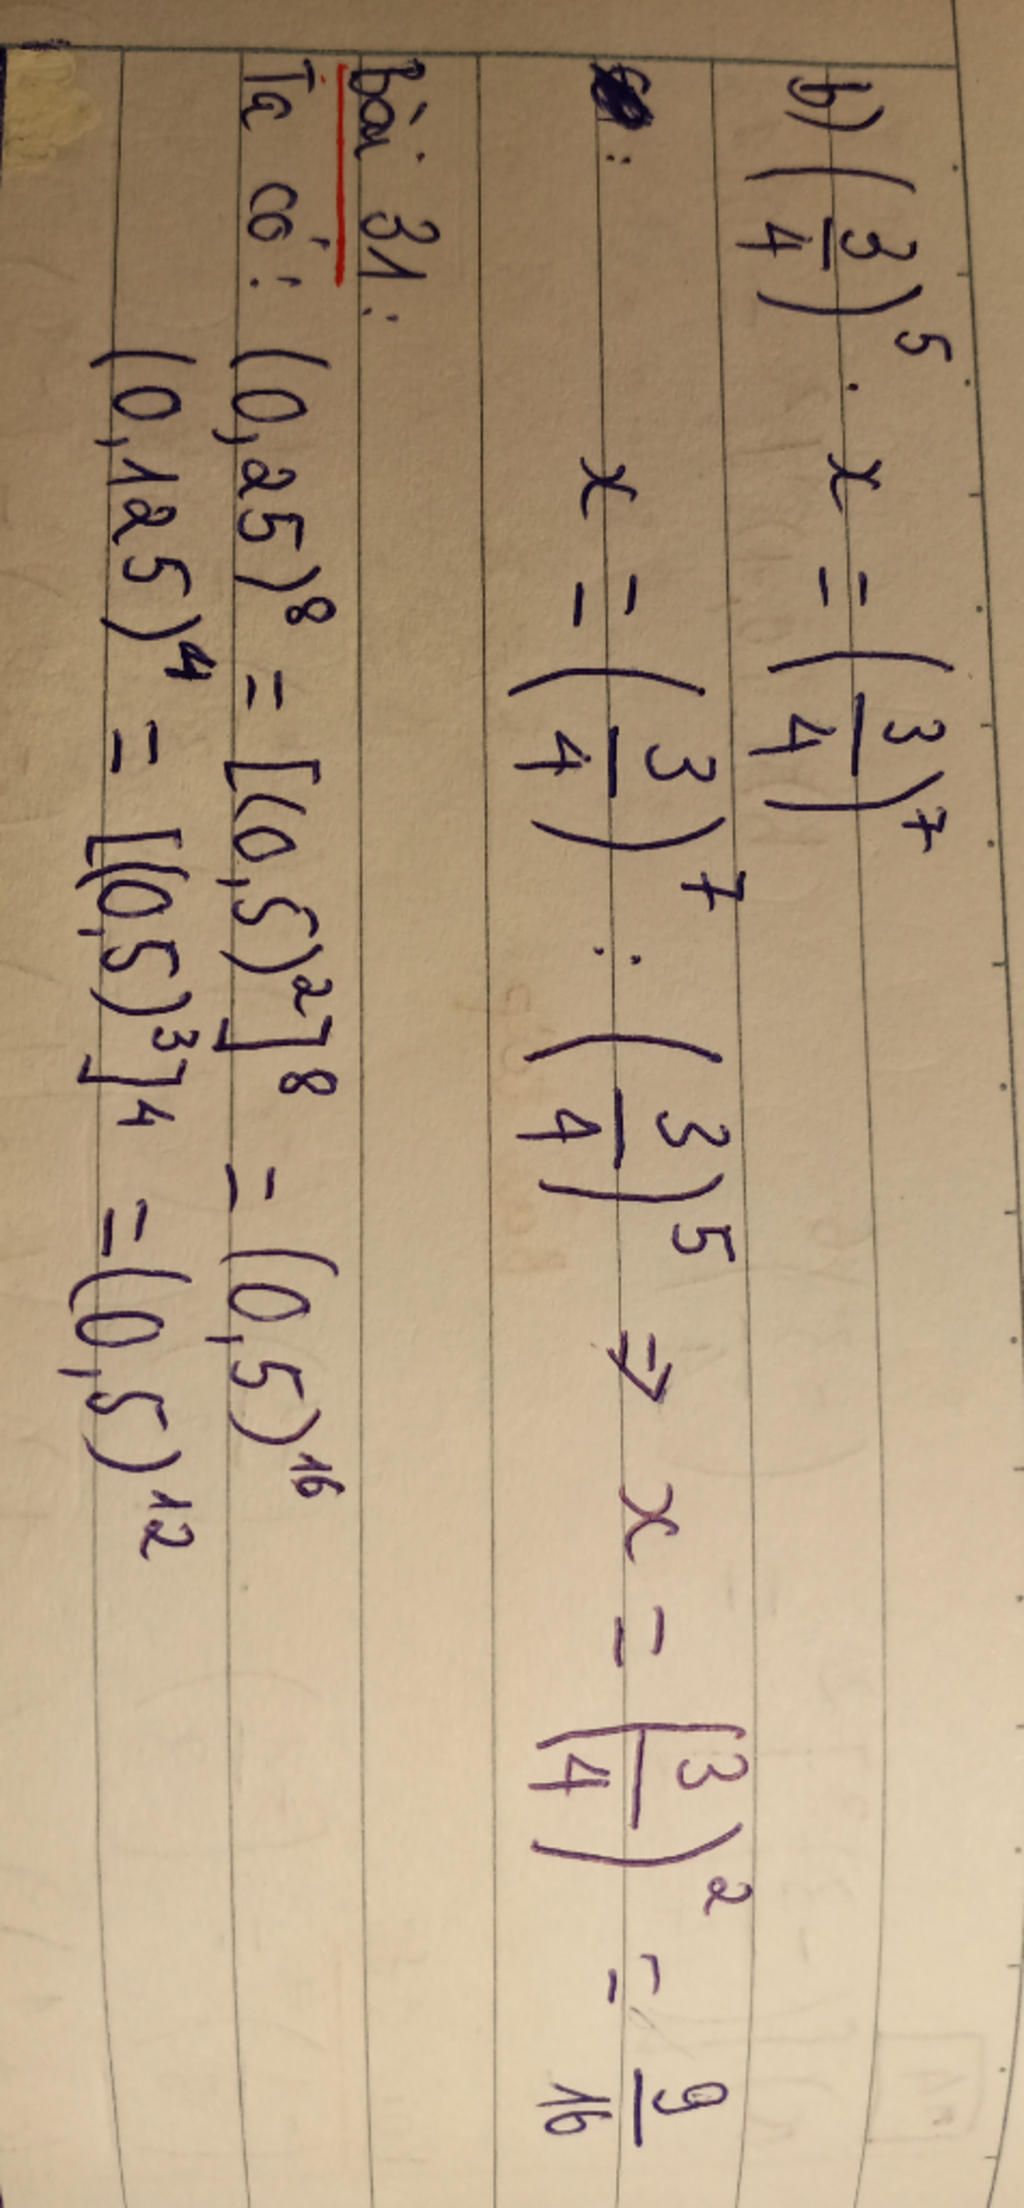 b) (3/4)⁵ . x = (3/4)⁷
: x = (3/4)⁷ : (3/4)⁵ ⇒ x = (3/4)² = 9/16
Bài 31:
Ta có: (0,25)⁸ = [(0,5)²]⁸ = (0,5)¹⁶
(0,125)⁴ = [(0,5)³]⁴ = (0,5)¹²